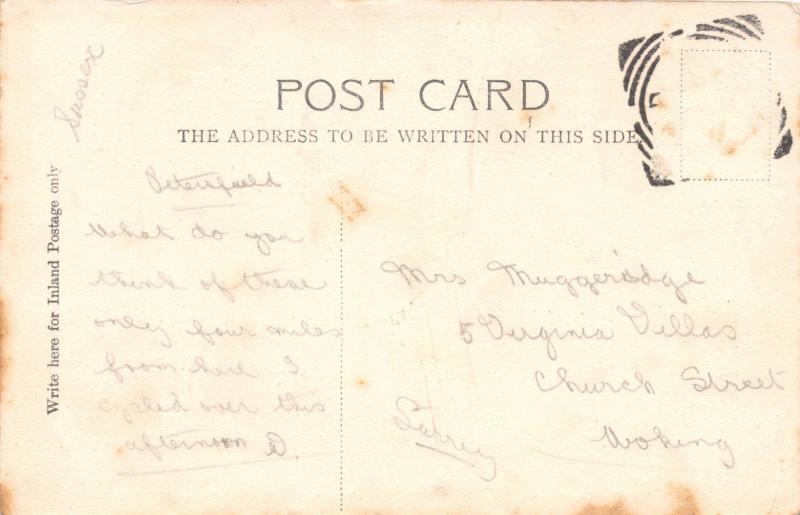 Sussex
POST CARD
THE ADDRESS TO BE WRITTEN ON THIS SIDE.
Write here for Inland Postage only
Petersfield
What do you
think of these
only four miles
from here I
cycled over this
afternoon D.
Mrs Muggeridge
5 Virginia Villas
Church Street
Woking
Surrey